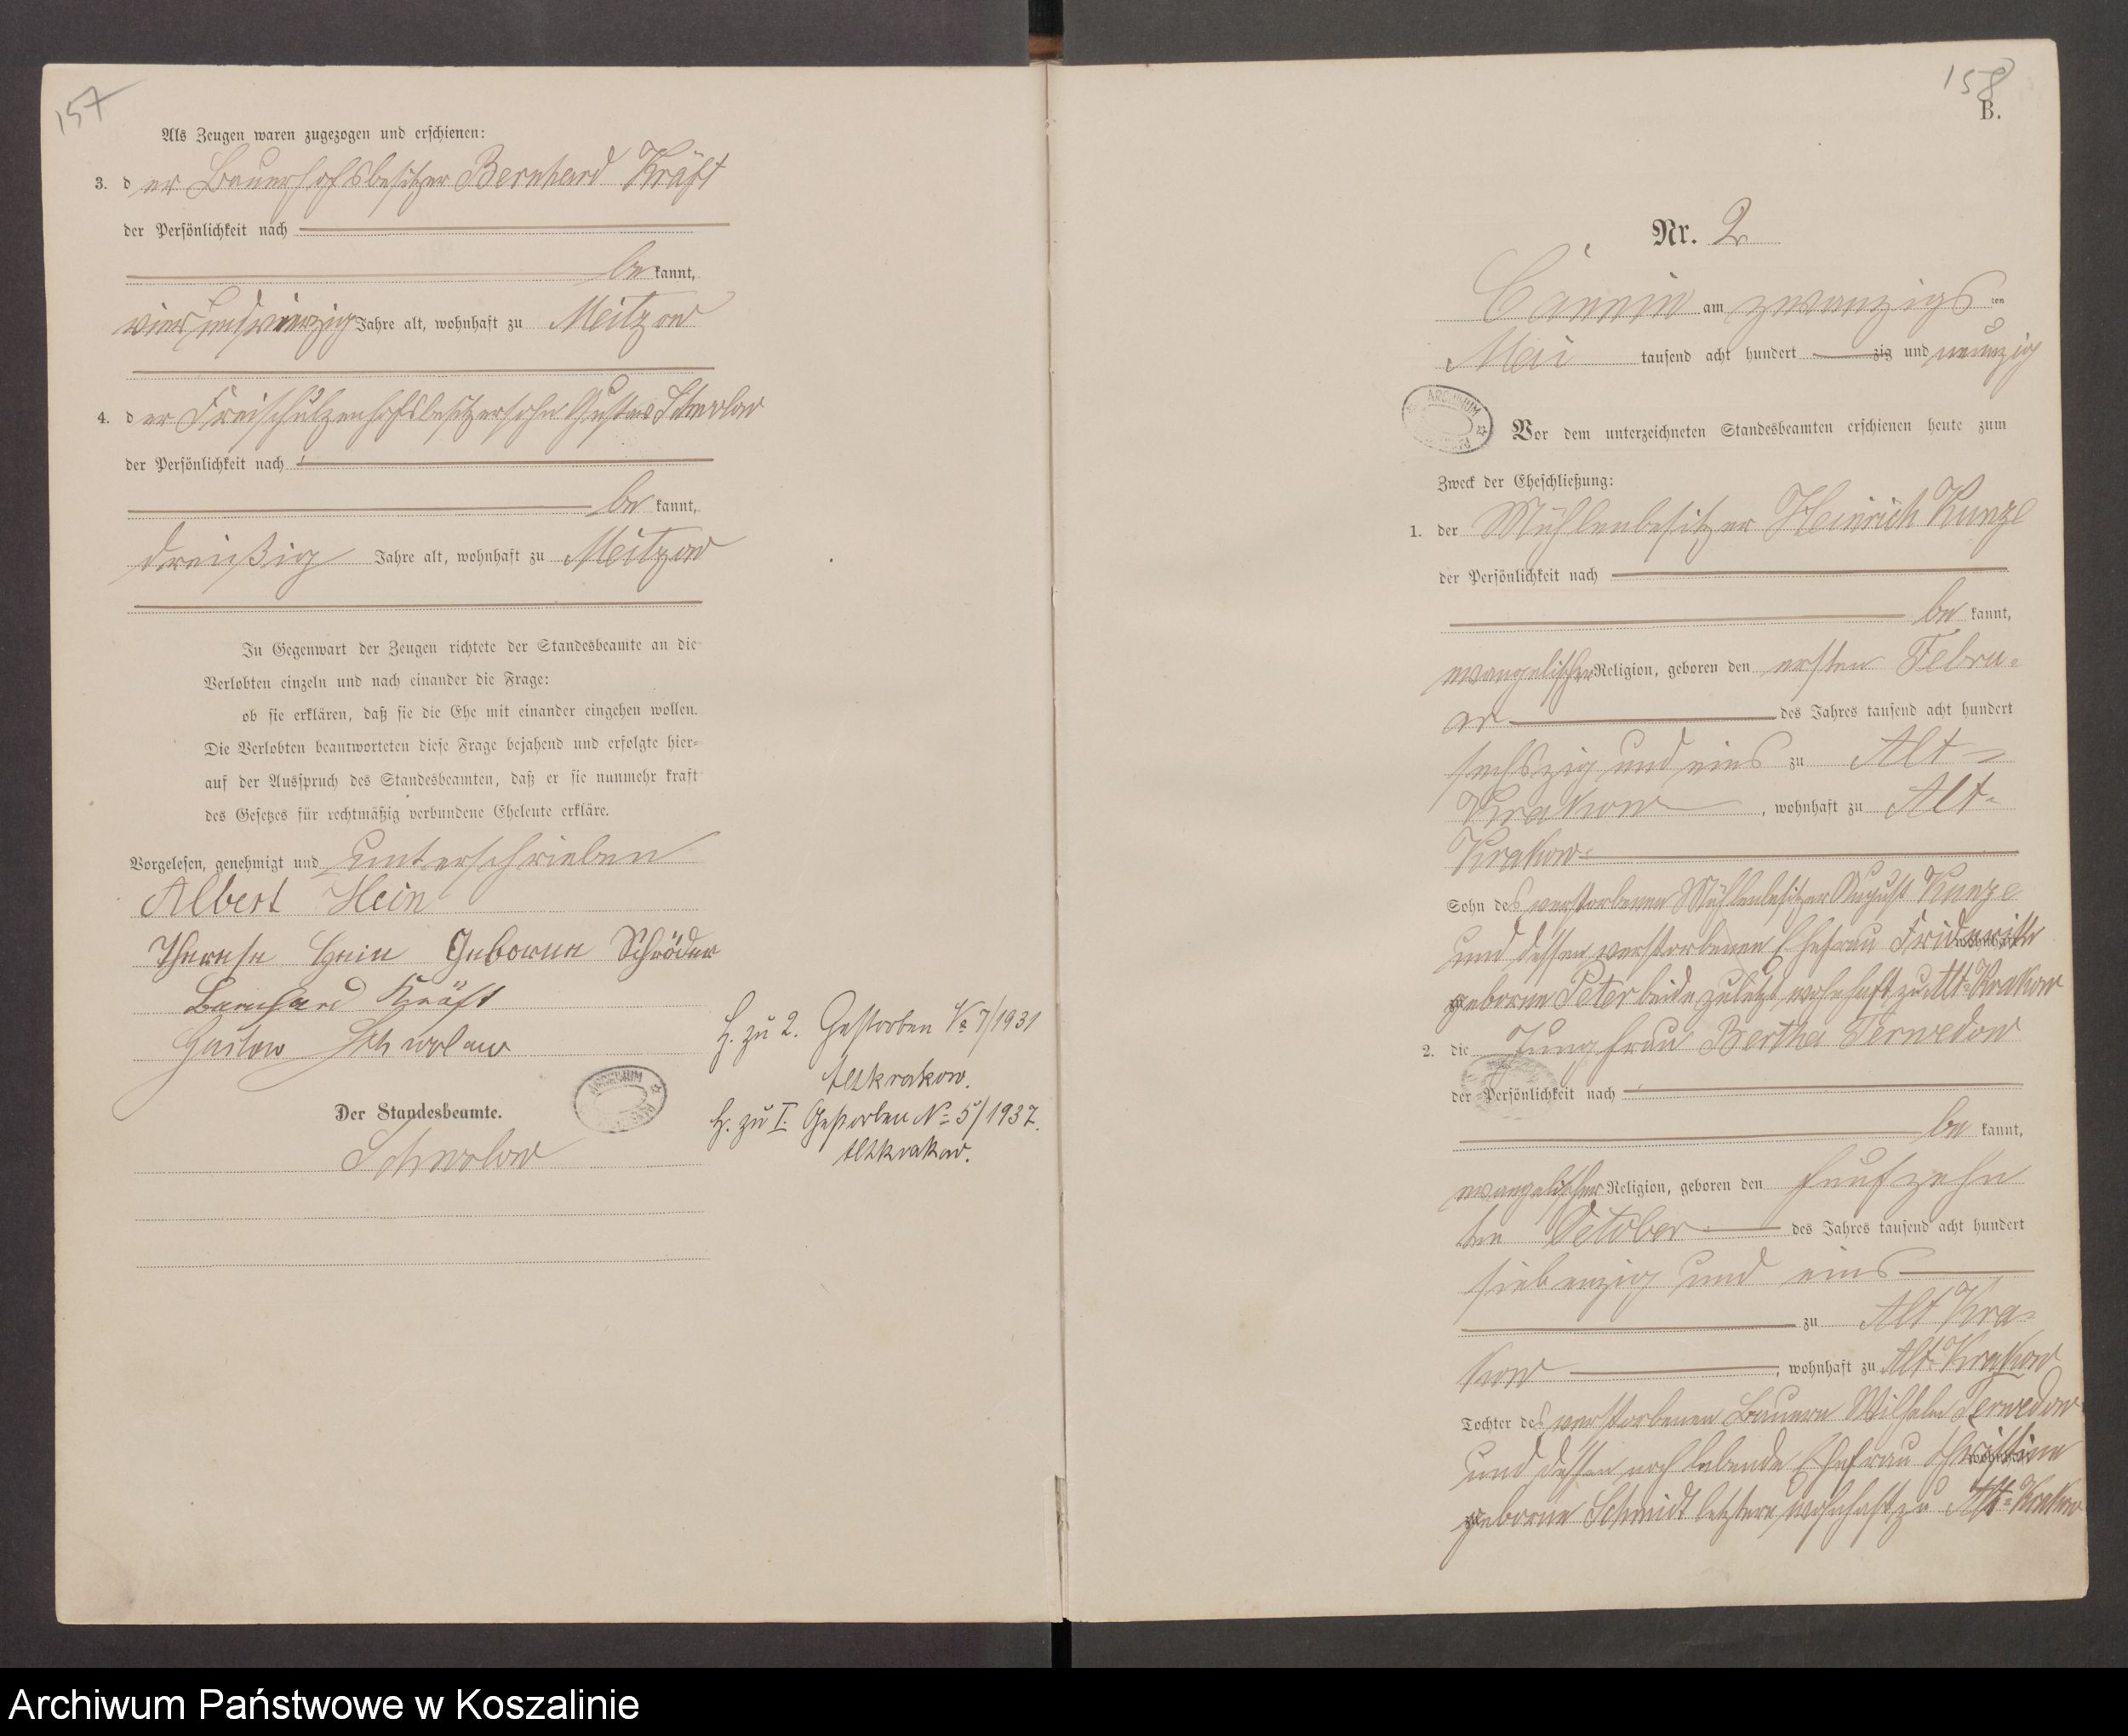 157
Als Zeugen waren zugezogen und erschienen:
3. der Bauerhofsbesitzer Bernhard Kräft
der Persönlichkeit nach
be kannt,
vier und vierzig Jahre alt, wohnhaft zu Meitzow
4. der Freischulzenhofsbesitzersohn Gustav Schwolow
der Persönlichkeit nach
be kannt,
dreißig Jahre alt, wohnhaft zu Meitzow
In Gegenwart der Zeugen richtete der Standesbeamte an die
Verlobten einzeln und nach einander die Frage:
ob sie erklären, daß sie die Ehe mit einander eingehen wollen.
Die Verlobten beantworteten diese Frage bejahend und erfolgte hier-
auf der Ausspruch des Standesbeamten, daß er sie nunmehr kraft
des Gesetzes für rechtmäßig verbundene Eheleute erkläre.
Vorgelesen, genehmigt und unterschrieben
Albert Hein
Therese Hein Geborne Schröder
Bernhard Kräft
Gustav Schwolow
H. zu 2. Gestorben № 7/1931
Altkrakow.
ARCHIWUM
Der Standesbeamte.
H. zu I. Gestorben № 5/1937.
Altkrakow.
Schwolow
158
B.
Nr. 2
am zwanzigsten
Mai tausend acht hundert zig und neunzig
ARCHIWUM
Vor dem unterzeichneten Standesbeamten erschienen heute zum
Zweck der Eheschließung:
1. der Mühlenbesitzer Heinrich Kunze
der Persönlichkeit nach
be kannt,
evangelischer Religion, geboren den ersten Febru-
ar des Jahres tausend acht hundert
sechszig und eins zu Alt-
Krakow, wohnhaft zu Alt-
Krakow
Sohn des verstorbenen Mühlenbesitzer August Kunze
und dessen verstorbenen Ehefrau Friderike
geborne Peter beide zuletzt wohnhaft zu Alt-Krakow
2. die Jungfrau Bertha Terwedow
der Persönlichkeit nach
be kannt,
evangelischer Religion, geboren den funfzehn
ten October des Jahres tausend acht hundert
siebenzig und eins
zu Alt Kra-
kow, wohnhaft zu Alt-Krakow
Tochter des verstorbenen Bauern Wilhelm Terwedow
und dessen noch lebende Ehefrau Christine
geborne Schmidt letztere wohnhaft zu Alt-Krakow
Archiwum Państwowe w Koszalinie